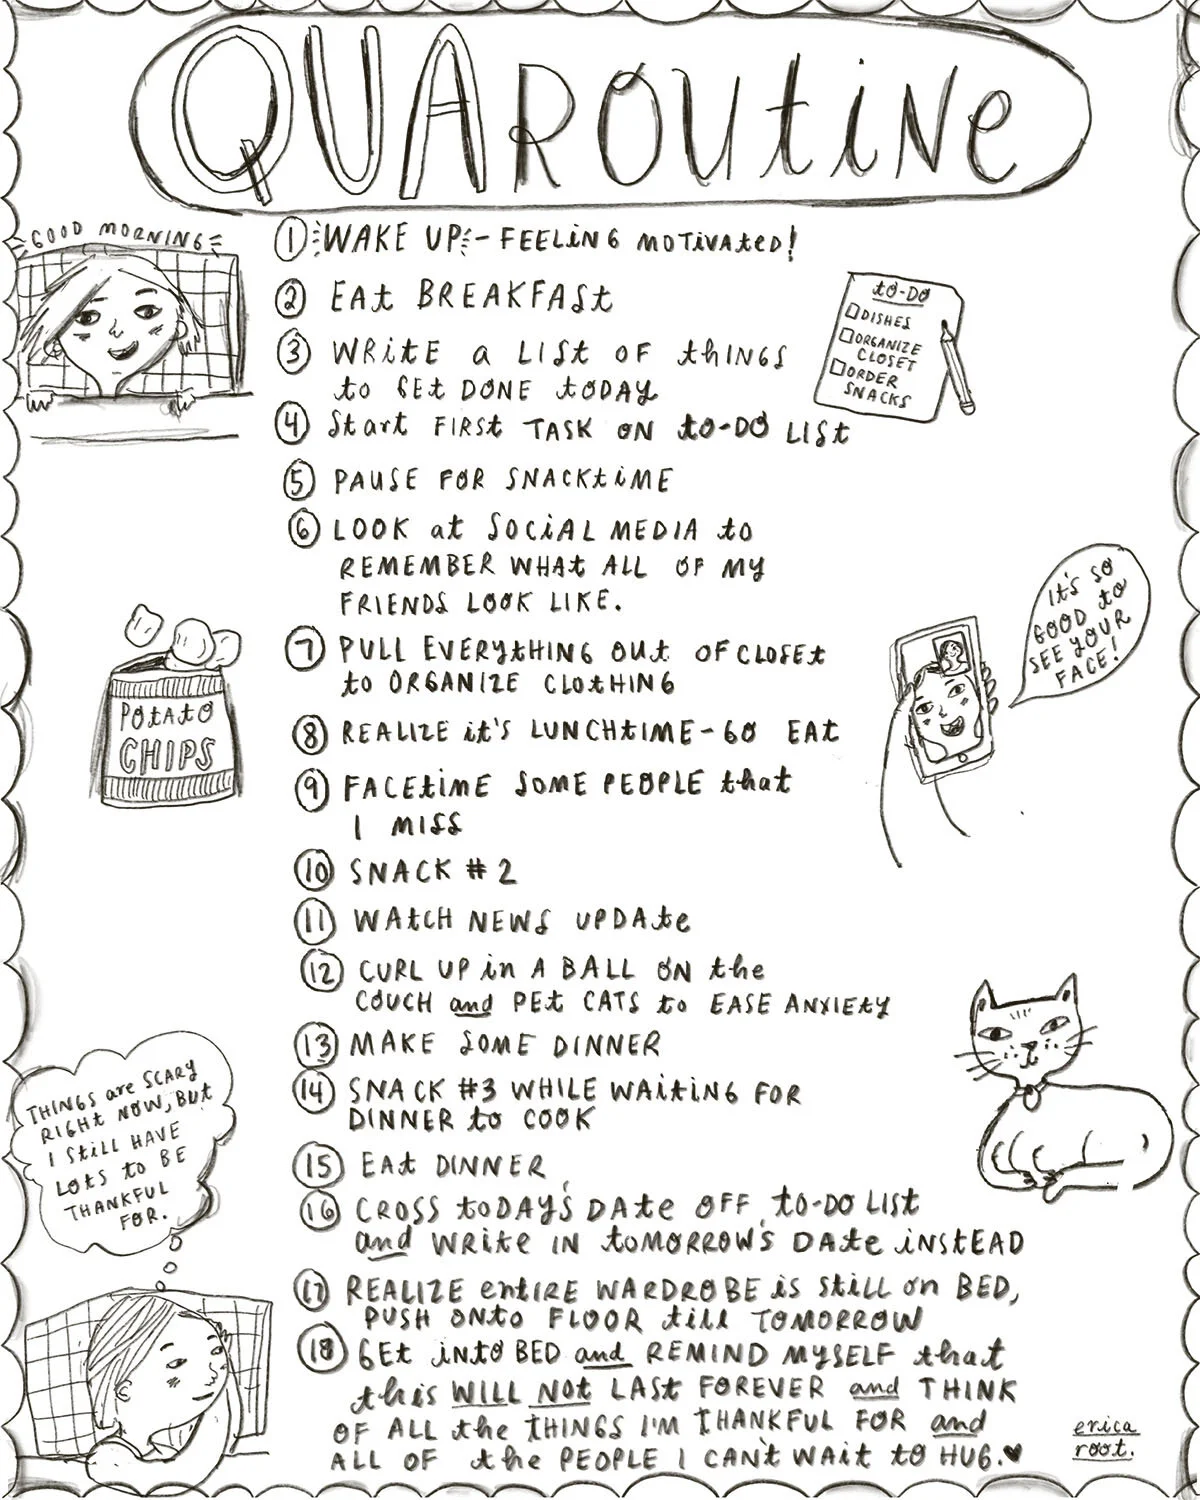 QUAROUTINE
GOOD MORNING
① WAKE UP - FEELING MOTIVATED!
② EAT BREAKFAST
③ WRITE A LIST OF THINGS
TO GET DONE TODAY
④ START FIRST TASK ON TO-DO LIST
TO-DO
DISHES
ORGANIZE
CLOSET
ORDER
SNACKS
⑤ PAUSE FOR SNACKTIME
⑥ LOOK at SOCIAL MEDIA to
REMEMBER WHAT ALL OF MY
FRIENDS LOOK LIKE.
⑦ PULL EVERYTHING OUT OF CLOSET
to ORGANIZE CLOTHING
IT'S SO
GOOD TO
SEE YOUR
FACE!
POTATO
CHIPS
⑧ REALIZE it'S LUNCHTIME - GO EAT
⑨ FACETIME SOME PEOPLE that
I MISS
⑩ SNACK #2
⑪ WATCH NEWS UPDATE
⑫ CURL UP in A BALL ON the
COUCH and PET CATS to EASE ANXIETY
⑬ MAKE SOME DINNER
⑭ SNACK #3 WHILE WAITING FOR
DINNER to COOK
⑮ EAT DINNER
⑯ CROSS TODAY'S DATE OFF TO-DO LIST
and WRITE IN TOMORROW'S DATE INSTEAD
⑰ REALIZE entIRE WARDROBE is still on BED,
PUSH ONTO FLOOR till TOMORROW
⑱ GET INTO BED and REMIND MYSELF that
this WILL NOT LAST FOREVER and THINK
OF ALL the THINGS I'M THANKFUL FOR and
ALL OF the PEOPLE I CAN'T WAIT TO HUG.♥
THINGS are SCARY
RIGHT NOW, BUT
I STILL HAVE
LOTS to BE
THANKFUL
FOR.
erica
root.